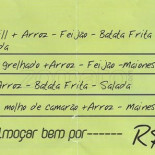 ill + Arroz - Feijão - Batata Frita
da
grelhado + Arroz - Feijão - Maiones
Arroz - Batata Frita - Salada
molho de camarão + Arroz - Maines
lmoçar bem por------ R$